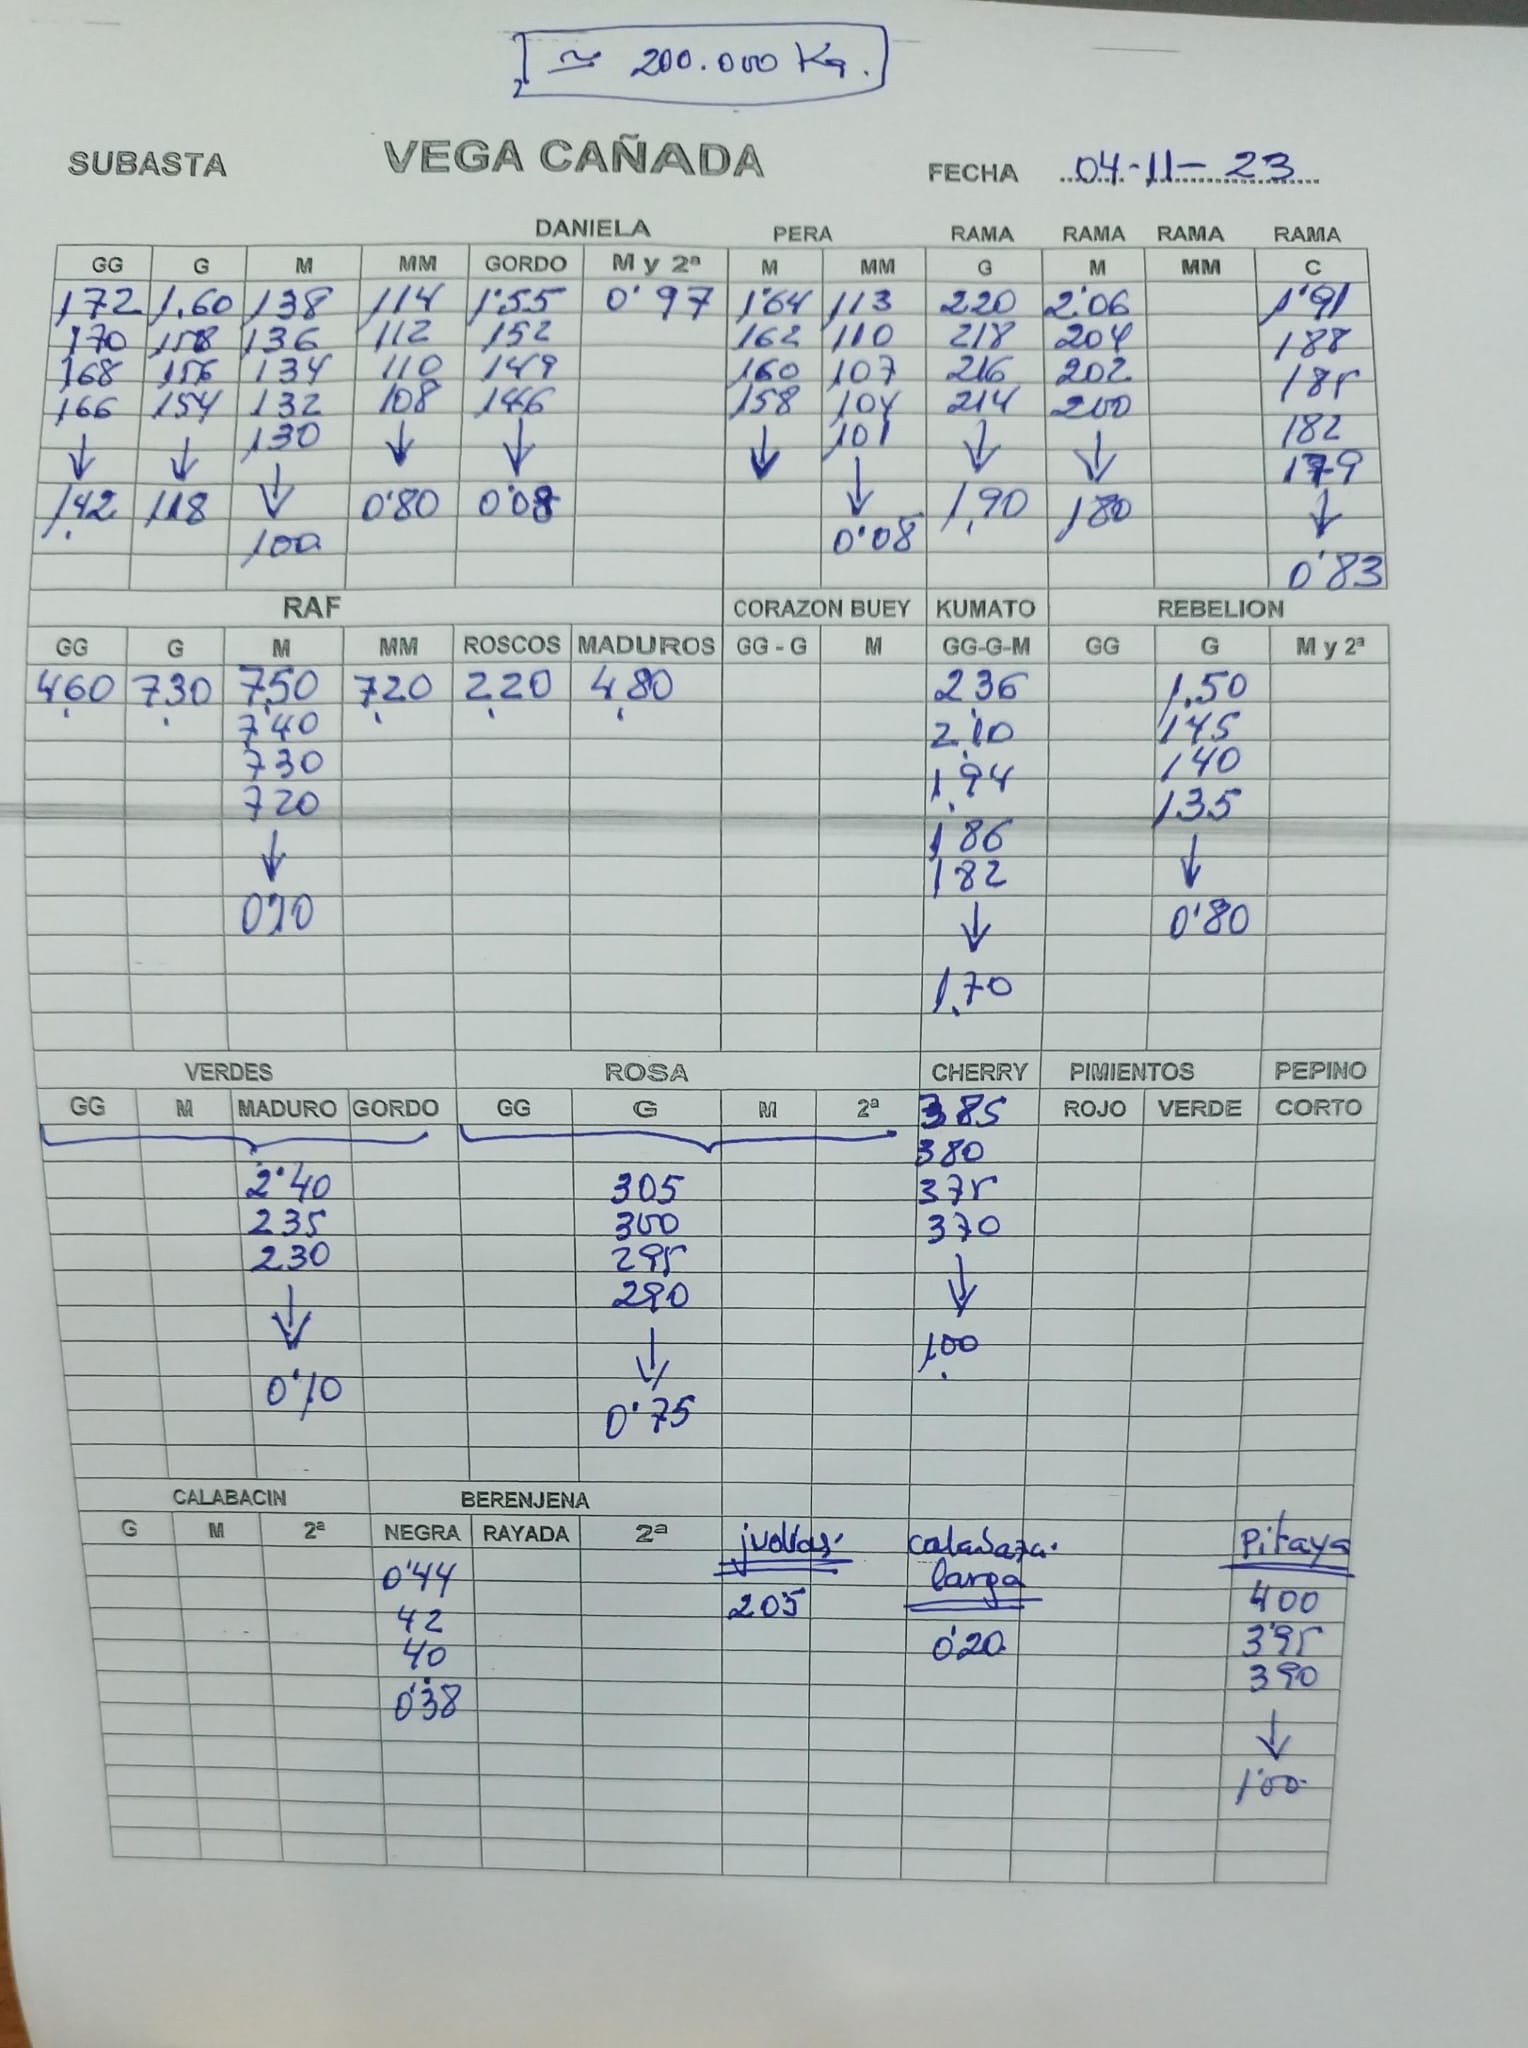 ≃ 200.000 Kg.
SUBASTA VEGA CAÑADA FECHA 04-11-23
DANIELA PERA RAMA RAMA RAMA RAMA
GG G M MM GORDO M y 2ª M MM G M MM C
1,72 1,60 138 114 1'55 0'97 1'64 113 220 2'06 1'91
170 158 136 112 152 162 110 218 204 188
168 156 134 110 149 160 107 216 202 185
166 154 132 108 146 158 104 214 200 182
130 101 179
↓ ↓ ↓ ↓ ↓ ↓ ↓ ↓ ↓ ↓
1,42 118 100 0'80 0'08 0'08 1,90 180 0'83
RAF CORAZON BUEY KUMATO REBELION
GG G M MM ROSCOS MADUROS GG - G M GG-G-M GG G M y 2ª
4,60 7,30 7,50 7,20 2,20 4,80 2,36 1,50
7'40 2,10 145
730 1,94 140
720 186 135
↓ 182 ↓
0'10 ↓ 0'80
1,70
VERDES ROSA CHERRY PIMIENTOS PEPINO
GG M MADURO GORDO GG G M 2ª 385 ROJO VERDE CORTO
380
2'40 305 375
235 300 370
230 295 ↓
↓ 290 1,00
0'10 ↓
0'75
CALABACIN BERENJENA
G M 2ª NEGRA RAYADA 2ª judias. calabaza. larga Pitaya
0'44 205 0'20 400
42 3'95
40 390
0'38 ↓
1'00